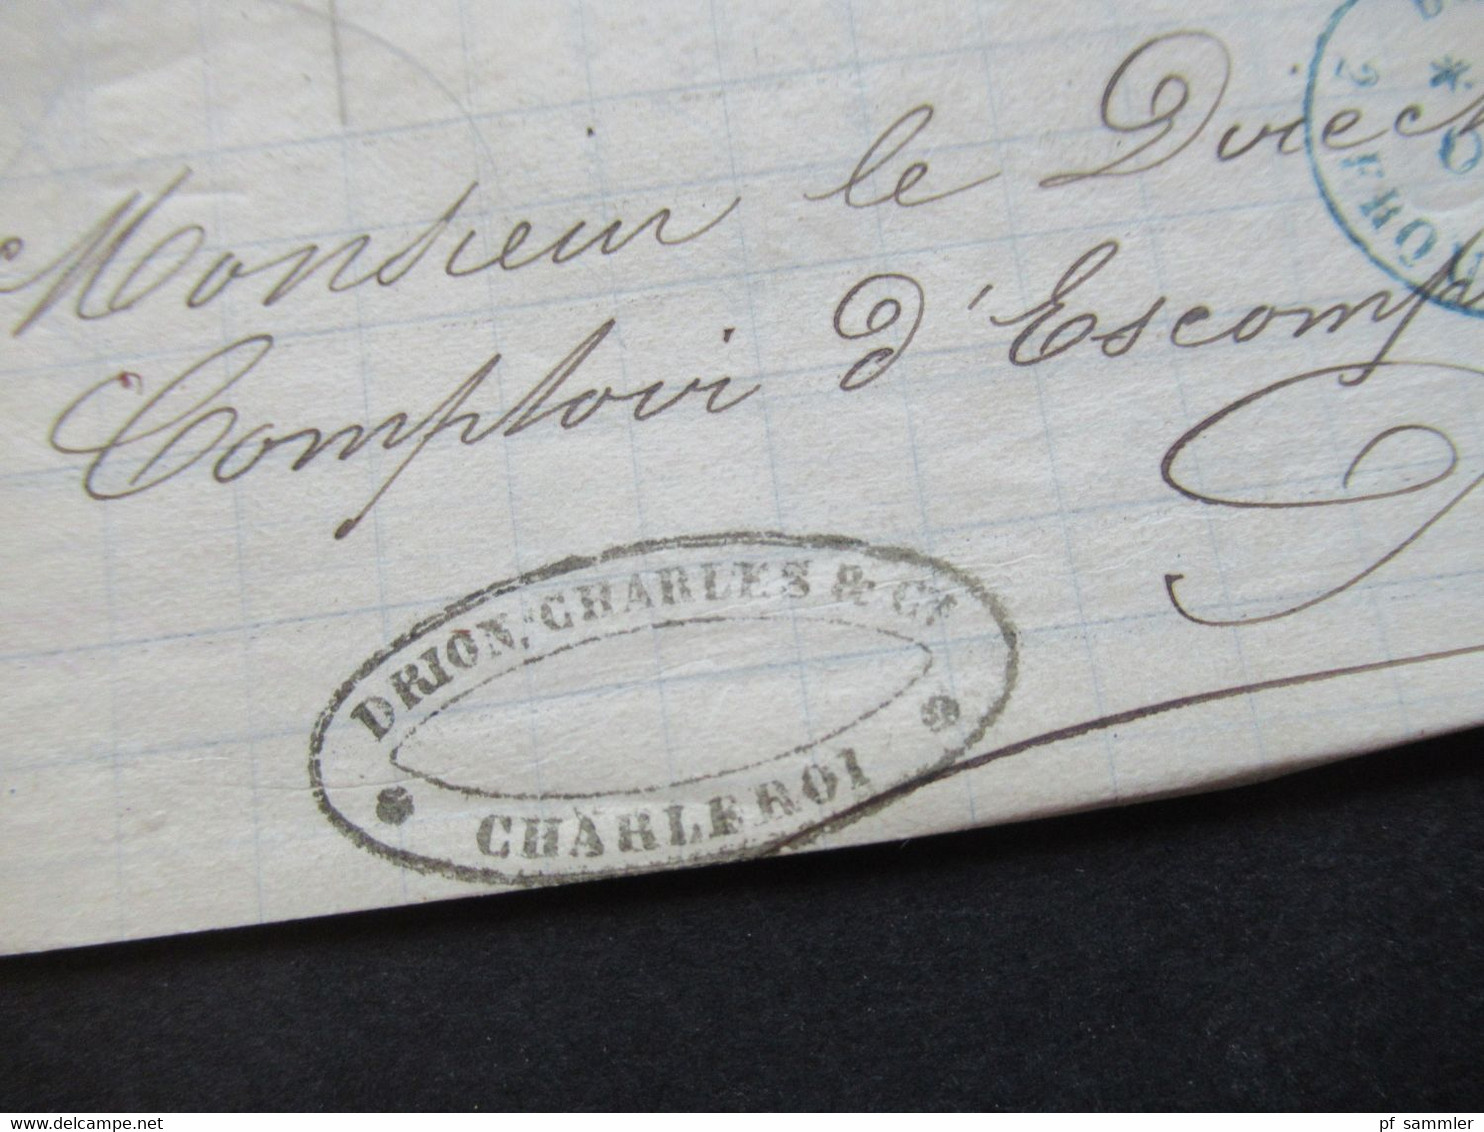 Monsieur le Direct
Comptoir d'Escomp
DRION, CHARLES & Cie
CHARLEROI
2
ERQU
delcampe.net
pf_sammler